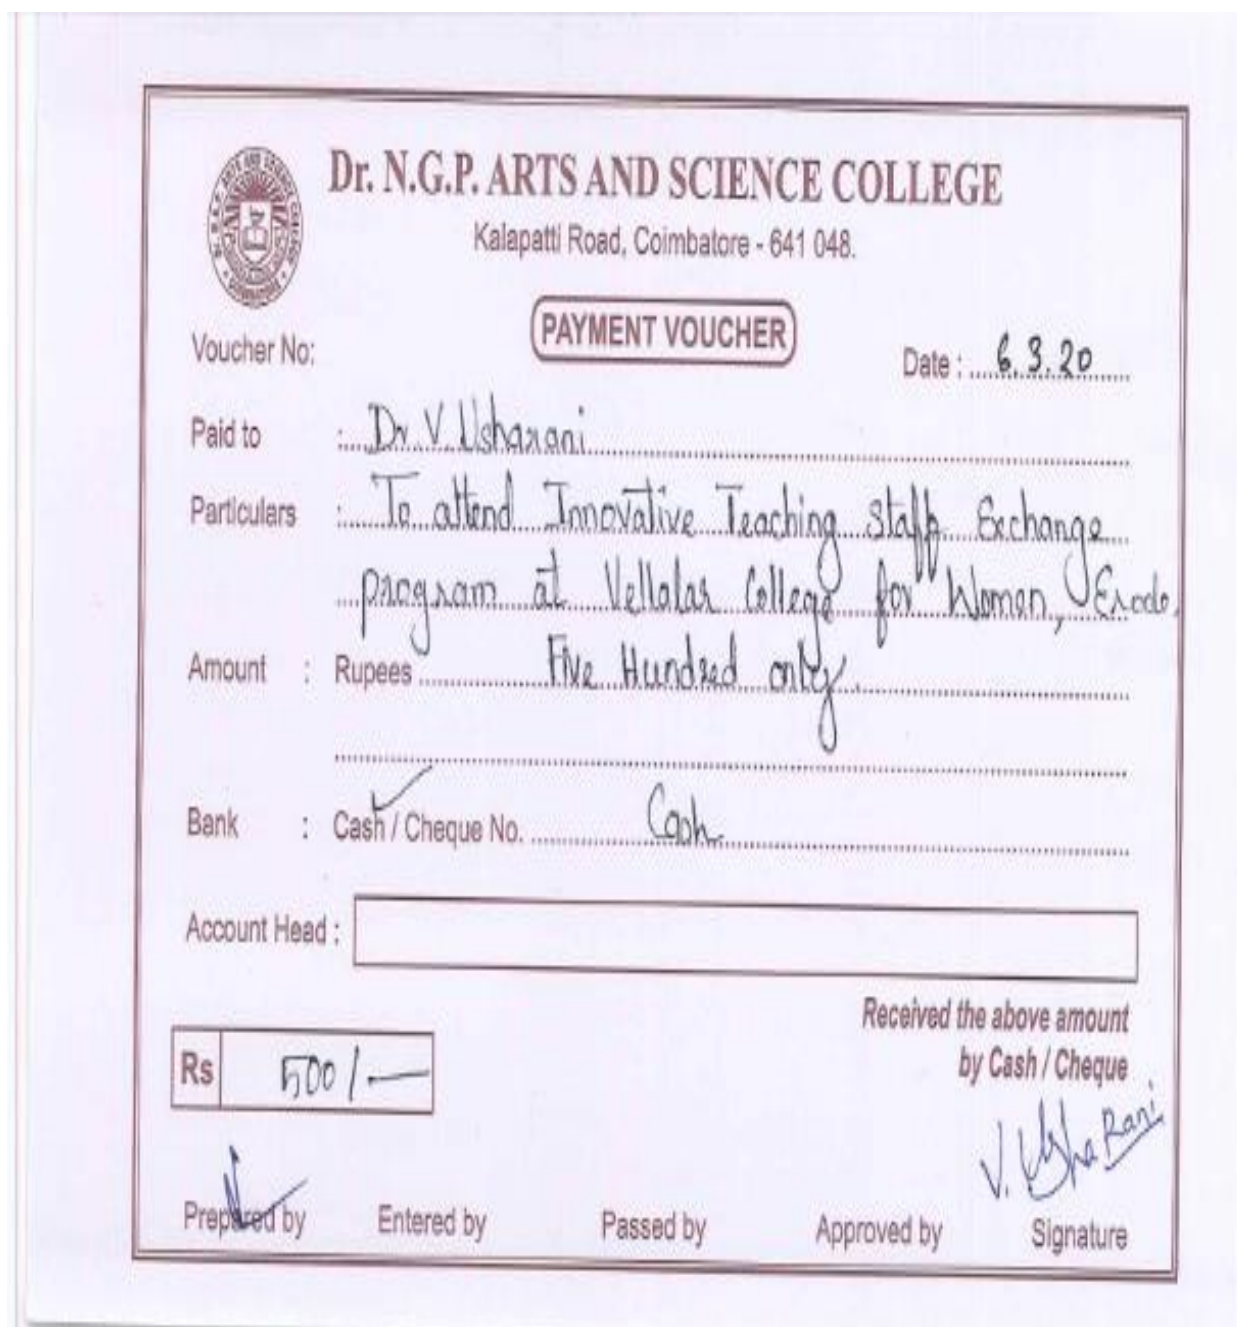 Dr. N.G.P. ARTS AND SCIENCE COLLEGE
Kalapatti Road, Coimbatore - 641 048.
PAYMENT VOUCHER
Voucher No:
Date : 6.3.20
Paid to : Dr. V. Usharani
Particulars : To attend Innovative Teaching Staff Exchange
program at Vellalar College for Women, Erode.
Amount : Rupees Five Hundred only.
Bank : Cash / Cheque No. Cash
Account Head :
Received the above amount
by Cash / Cheque
Rs 500/-
V. Usha Rani
Prepared by Entered by Passed by Approved by Signature